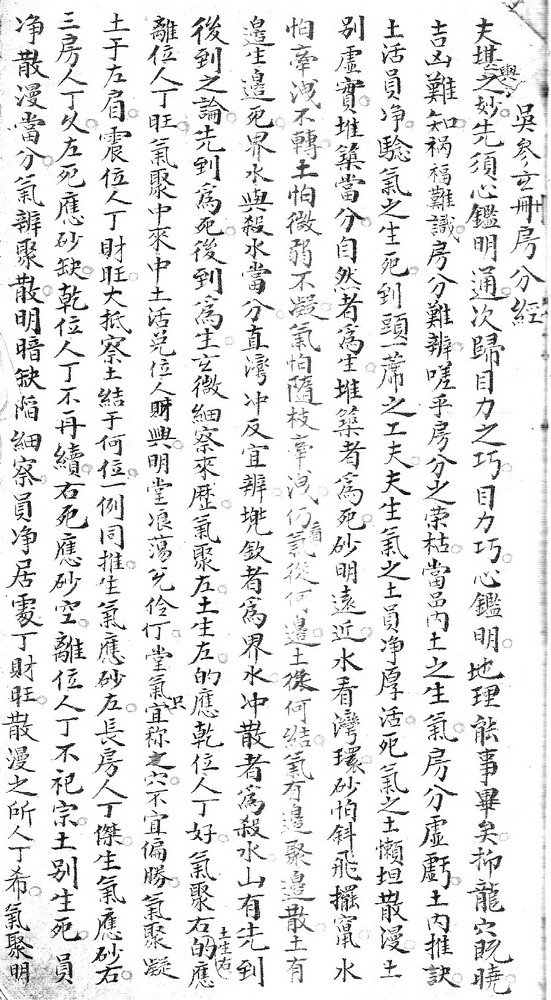 吳參玄冊房分經
夫堪輿之妙先須心鑑明通次歸目力之巧目力巧心鑑明地理能事畢矣抑龍穴既曉
吉凶難知禍福難識房分難辨嗟乎房分之荣枯當島內土之生氣房分虛虧土內推訣
土活員净驗氣之生死到頭一蓆之工夫夫生氣之土員净厚活死氣之土懶坦散漫土
別虛實堆築當分自然者為生堆築者為死砂明遠近水看灣環砂怕斜飛擺竄水
怕牽洩不轉土怕微弱不凝氣怕隨枝牽洩仍看氣從何邉土從何結氣有邉聚邉散土有
邉生邉死界水與殺水當分直灣冲反宜辨挽欽者為界水冲散者為殺水山有先到
後到之論先到為死後到為生玄微細察來歷氣聚左土生左的應乾位人丁好氣聚右土生右的應
離位人丁旺氣聚中來中土活兌位人財興明堂浪蕩兌伶仃堂氣只宜称之穴不宜偏勝氣聚凝
土于左肩震位人丁財旺大抵察土結于何位一例同推生氣應砂左長房人丁傑生氣應砂右
三房人丁久左死應砂缺乾位人丁不再續右死應砂空離位人丁不祀宗土別生死員
净散漫當分氣辨聚散明暗缺陷細察員净居處丁財旺散漫之所人丁希氣聚明